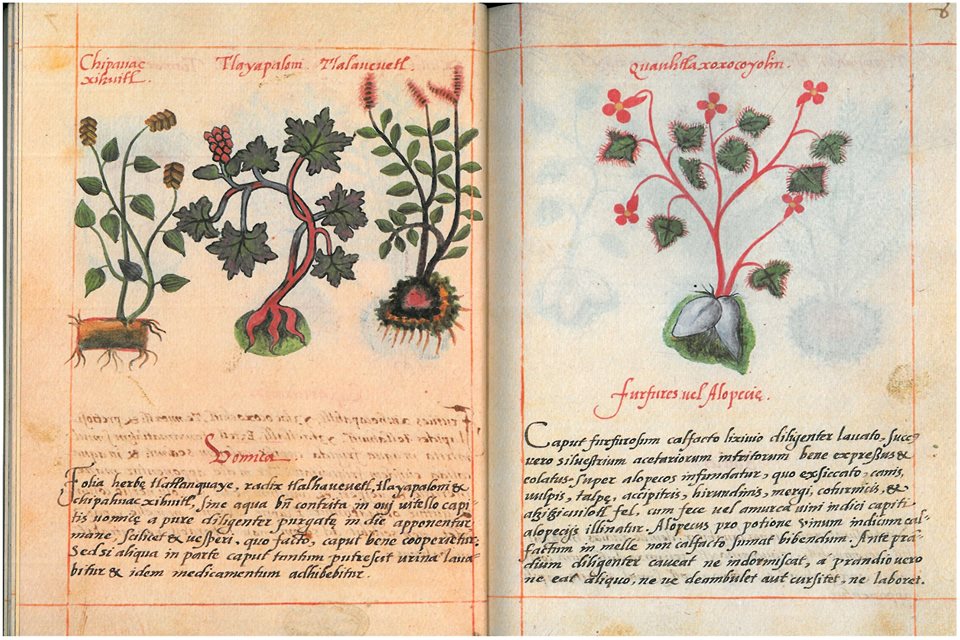 Chipauac
xihuitl.
Tlayapaloni.
Tlalaueuetl.
Vomica
Folia herbę tlatlanquaye, radix tlalhaueuetl, tlayapaloni &
chipahuac xihuitl, sine aqua bñ contrita in oui uitello capi
tis uomicę a pure diligenter purgatę in die apponentur
mane scilicet & uesperi, quo facto, caput bene cooperiatur.
Sed si aliqua in parte caput tantum putrescat urina laua
bitur & idem medicamentum adhibebitur.
8
Quauhtlaxoxocoyolin.
Furfures uel Alopecię.
Caput furfurosum calfacto lixiuio diligenter lauato. Succ9
uero siluestrium acetariorum intritorum bene expressus &
colatus super alopecos infundatur, quo exsiccato, canis,
uulpis, talpę, accipitris, hirundinis, mergi, coturnicis, &
atzitzicuilotl fel, cum fece uel amurca uini indici capiti
alopecijs illinatur. Alopecus pro potione uinum indicum cal-
factum in melle non calfacto sumat bibendum. Ante pran-
dium diligenter caueat ne indormiscat, a prandio uero
ne eat aliquo, ne ue deambulet aut cursitet, ne laboret.